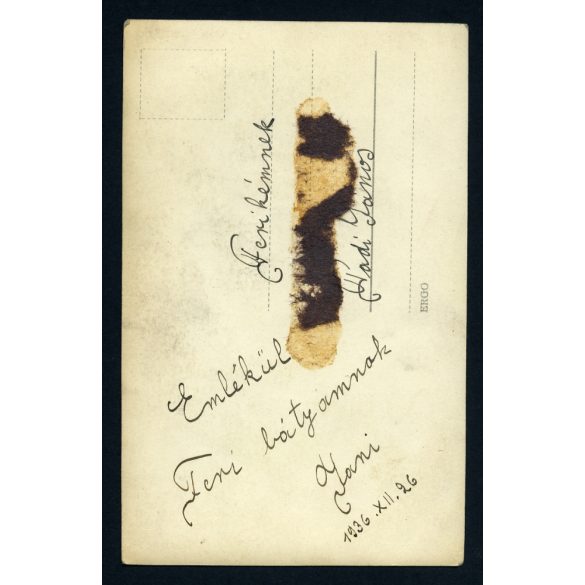 Emlékül
Feri bátyamnak
Jani
1936.XII.26
Ferikémnek
Kadi János
ERGO